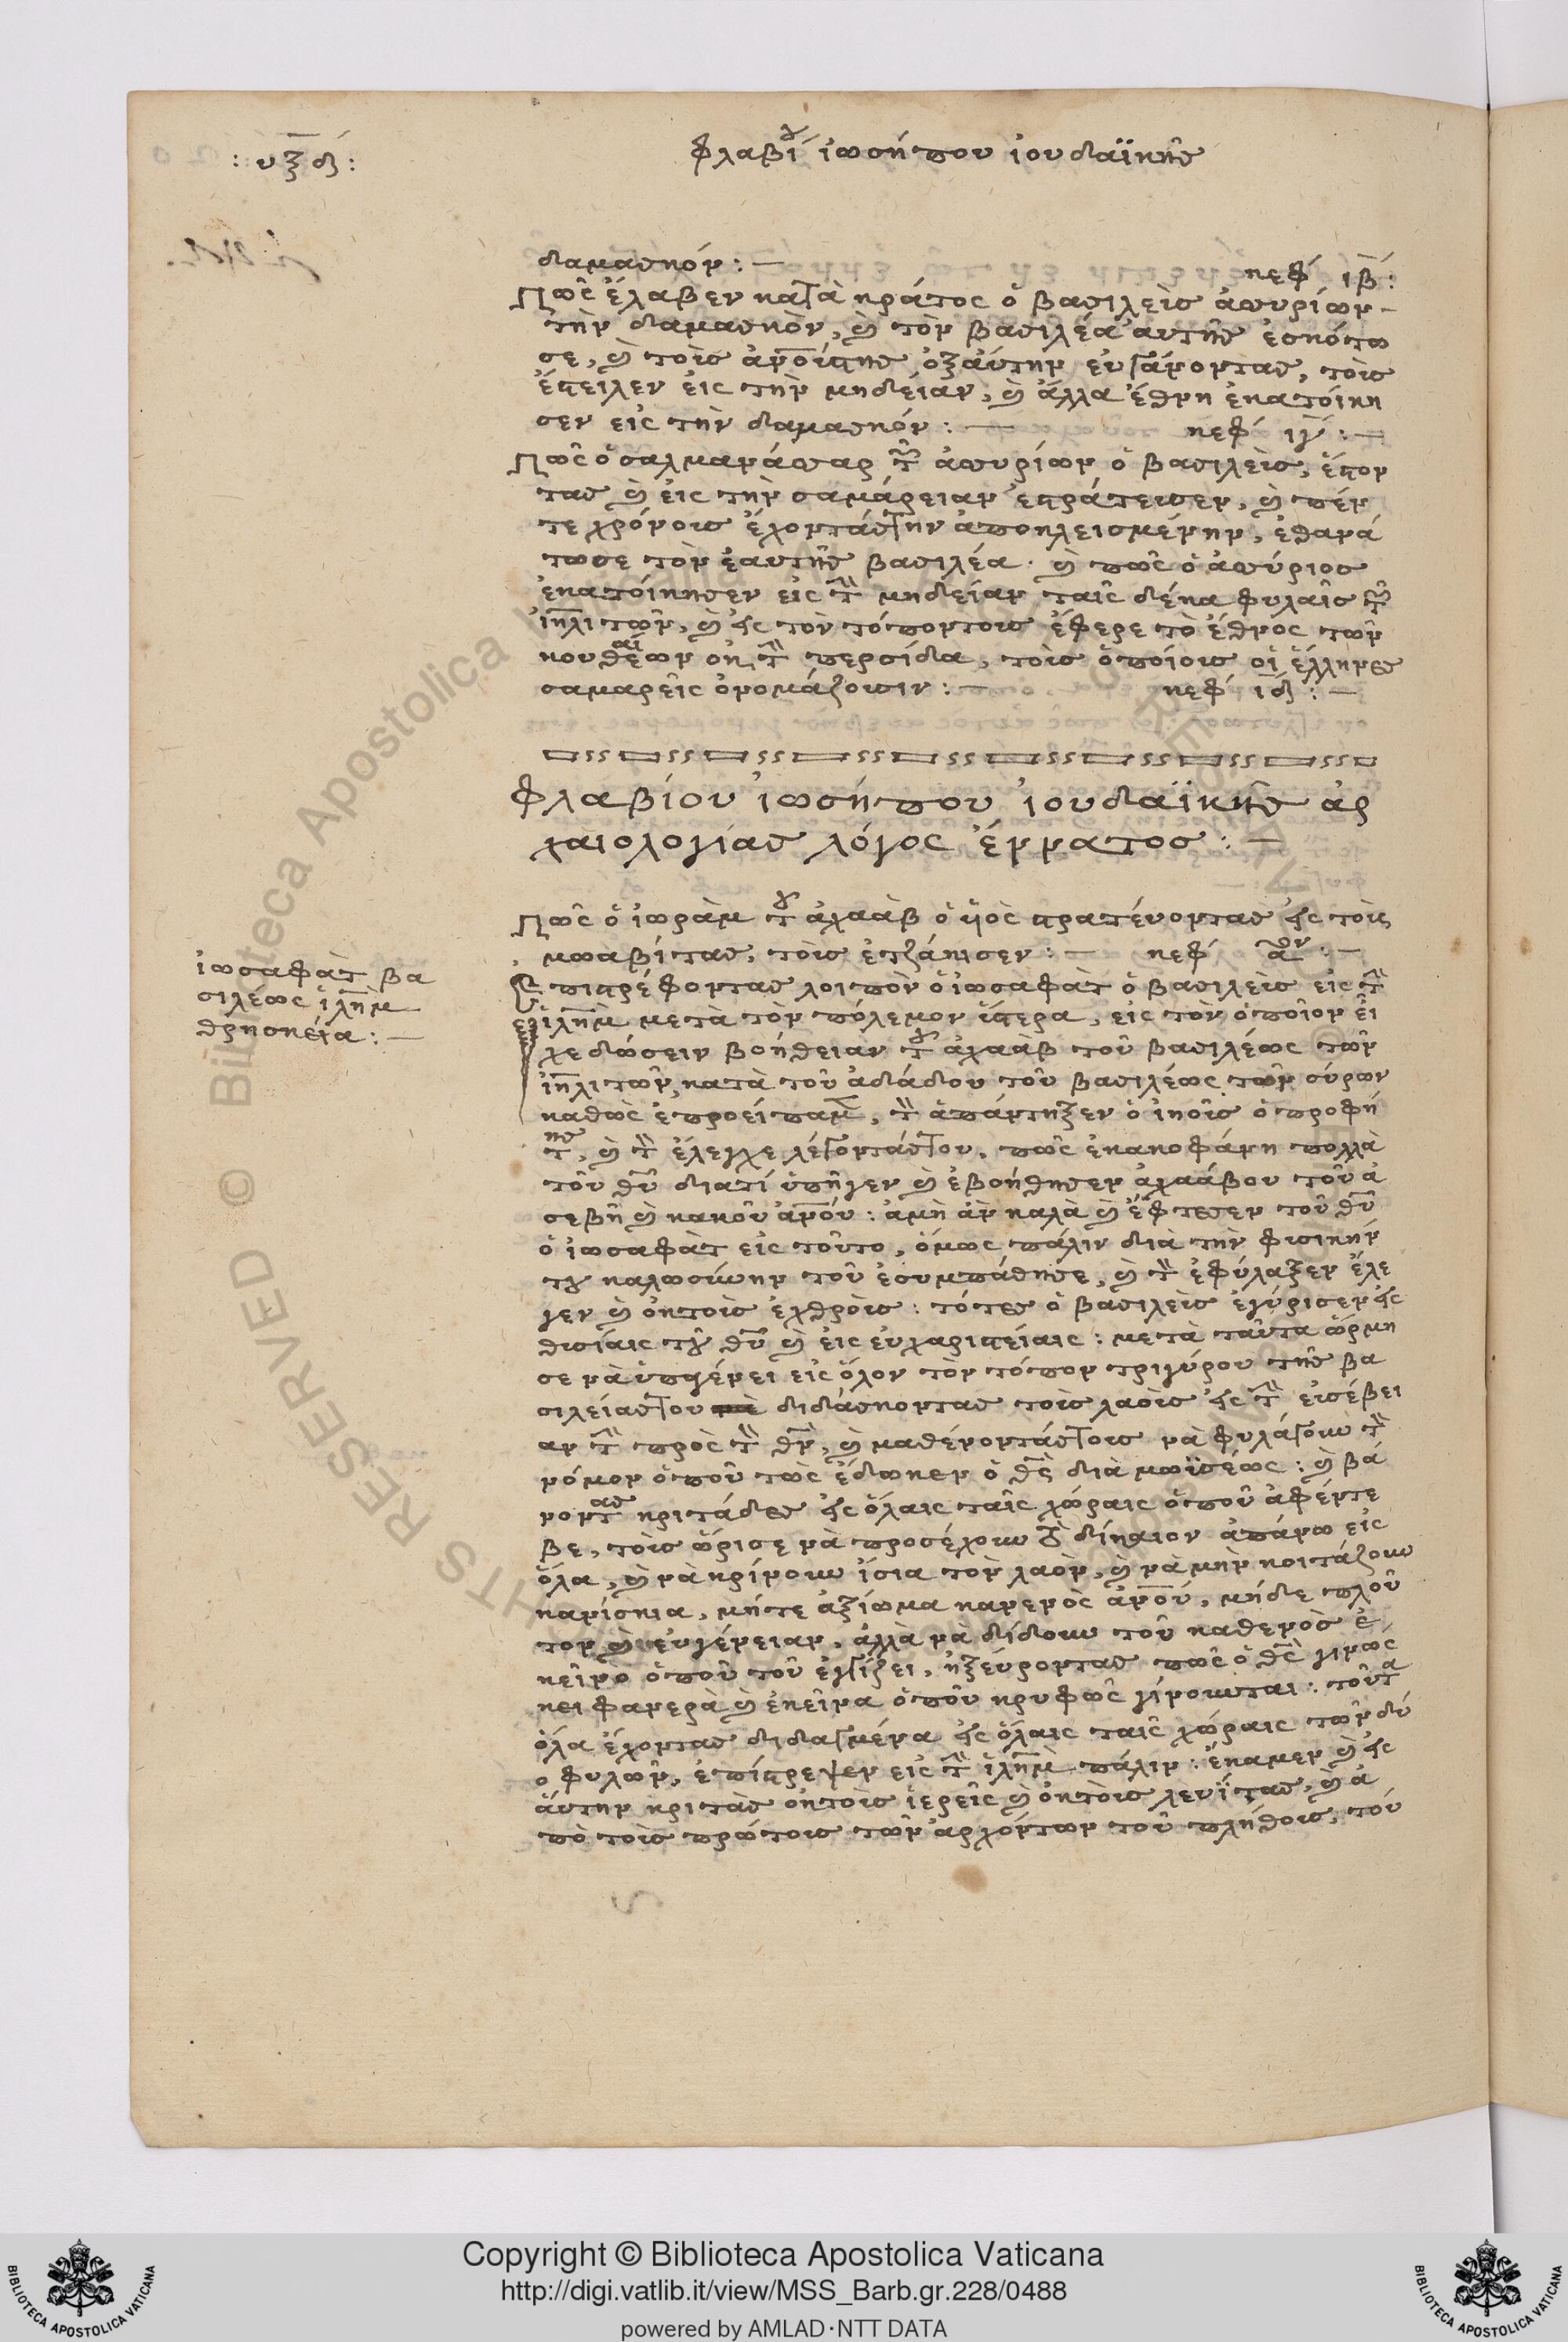 : υξδ :
φλαβί ἰωσήπου ἰουδαϊκῆς
δαμασκόν : — κεφ ιβ :
Πῶς ἔλαβεν κατὰ κράτος ὁ βασιλεὺς ἀσυρίων
τὴν δαμασκὸν, καὶ τὸν βασιλέα αὐτῆς ἐσκότω
σε, καὶ τοὺς
ἔστειλεν εἰς τὴν μηδείαν, καὶ ἄλλα ἔθνη ἐκατοίκη
σεν εἰς τὴν δαμασκόν : — κεφ ιγ : —
Πῶς ὁ σαλμανάσαρ τῶν ἀσυρίων ὁ βασιλεὺς,
τας καὶ εἰς τὴν σαμάρειαν ἐστράτευσεν, καὶ πέν
τε χρόνους ἔχοντάς την ἀποκλεισμένην, ἐθανά
τωσε τὸν ἑαυτῆς βασιλέα. καὶ πῶς ὁ ἀσύριος
ἐκατοίκησεν εἰς τὴν μηδείαν ταῖς δέκα φυλαῖς τῶν
ἰηλιτῶν, καὶ εἰς τὸν τόπον τους ἔφερε τὸ ἔθνος τῶν
κουθαίων ἐκ τὴν περσίδα, τοὺς ὁποίους οἱ ἕλληνες
σαμαρεῖς ὀνομάζουσιν : — κεφ ιδ : —
Φλαβίου ἰωσήπου ἰουδαϊκῆς ἀρ
χαιολογίας λόγος ἔννατος : —
Πῶς ὁ ἰωρὰμ τοῦ ἀχαὰβ ὁ ὑιὸς στρατεύοντας εἰς τοὺς
μωαβίτας, τοὺς ἐτζάκισεν : — κεφ αον : —
ἰωσαφὰτ βα
σιλέως ἰλὴμ
θρησκεία : —
Επιστρέφοντας λοιπὸν ὁ ἰωσαφὰτ ὁ βασιλεὺς εἰς τὴν
ἰλὴμ μετὰ τὸν πόλεμον ὕστερα, εἰς τὸν ὁποῖον εἶ
χε δώσειν βοήθειαν τοῦ ἀχαὰβ τοῦ βασιλέως τῶν
ἰηλιτῶν, κατὰ τοῦ ἀδάδου τοῦ βασιλέως τῶν σύρων
καθὼς ἐπροείπαμεν, τὸν ἀπάντηξεν ὁ ἰηοῦς ὁ προφή
της, καὶ τὸν ἔλεγχε λέγοντάς του, πῶς ἐκακοφάνη πολλὰ
τοῦ θυ διατί ὑπῆγεν καὶ ἐβοήθησεν ἀχαάβου τοῦ ἀ
σεβῆ καὶ κακοῦ ἀνου : ἀμὴ ἂν καλὰ καὶ ἔφταεσεν τοῦ θυ
ὁ ἰωσαφὰτ εἰς τοῦτο, ὅμως πάλιν διὰ τὴν φισικήν
του καλωσύνην τοῦ ἐσυμπάθησε, καὶ τὸν ἐφύλαξεν ἔλε
γεν καὶ ἐκ τοὺς ἐχθροὺς : τότες ὁ βασιλεὺς ἐγύρισεν εἰς
θυσίαις τοῦ θυ καὶ εἰς εὐχαριστείαις : μετὰ ταῦτα ὥρμη
σε νὰ ὑπαγένει εἰς ὅλον τὸν τόπον τριγύρου τῆς βα
σιλείας του διδάσκοντας τοὺς λαοὺς εἰς τὴν εἰσέβει
αν τὴν πρὸς τὸν θν, καὶ μαθένοντάς τους νὰ φυλάγουν τὸν
νόμον ὁποῦ τὼς ἔδωκεν ὁ θς διὰ μωϋσέως : καὶ βά
νοντας κριτάδες εἰς ὅλαις ταῖς χώραις ὁποῦ ἀφέντε
βε, τοὺς ὥρισε νὰ προσέχουν τὸ δίκαιον ἀπάνω εἰς
ὅλα, καὶ νὰ κρίνουν ἴσια τὸν λαὸν, καὶ νὰ μὴν κοιτάζουν
κανίσκια, μήτε ἀξίωμα κανενὸς ἀνου, μήδε πλοῦ
τον καὶ εὐγένειαν, ἀλλὰ νὰ δίδουν τοῦ καθενὸς ἐ
κεῖνο ὁποῦ τοῦ ἐγγίζει, ἠξεύροντας πῶς ὁ θς γινώς
κει φανερὰ καὶ ἐκεῖνα ὁποῦ κρυφῶς γίνουνται : τοῦτα
ὅλα ἔχοντας διδαγμένα εἰς ὅλαις ταῖς χώραις τῶν δύ
ο φυλῶν, ἐπίστρεψεν εἰς τὴν ἰλὴμ πάλιν : ἔκαμεν καὶ εἰς
αὔτην κριτὰς ἐκ τοὺς ἱερεῖς καὶ ἐκ τοὺς λευΐτας, καὶ ἀ
πὸ τοὺς πρώτους τῶν ἀρχόντων τοῦ πλήθους, τού
Copyright © Biblioteca Apostolica Vaticana
http://digi.vatlib.it/view/MSS_Barb.gr.228/0488
powered by AMLAD·NTT DATA